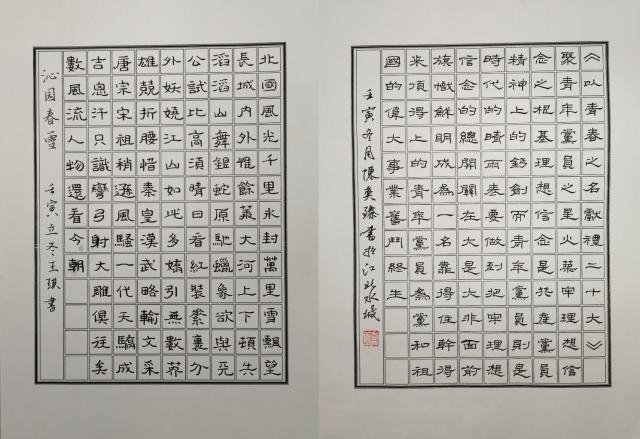 北國風光千里冰封萬里雪飄望
長城內外惟餘莽大河上下頓失
滔滔山舞銀蛇原馳蠟象欲與天
公試比高須晴日看紅裝素裹分
外妖嬈江山如此多嬌引無數英
雄競折腰惜秦皇漢武略輸文采
唐宗宋祖稍遜風騷一代天驕成
吉思汗只識彎弓射大雕俱往矣
數風流人物還看今朝
沁园春雪 壬寅立冬王琪書
《以青春之名獻禮二十大》
聚青年黨員之星火築牢理想信
念之根基理想信念是共產黨員
精神上的鈣劍而青年黨員則是
時代的晴雨表要做到把牢理想
信念的總開關在大是大非面前
旗幟鮮明成為一名靠得住幹得
來頂得上的青年黨員為黨和祖
國的偉大事業奮鬥終生
壬寅冬月陳奕臻書於江北水城